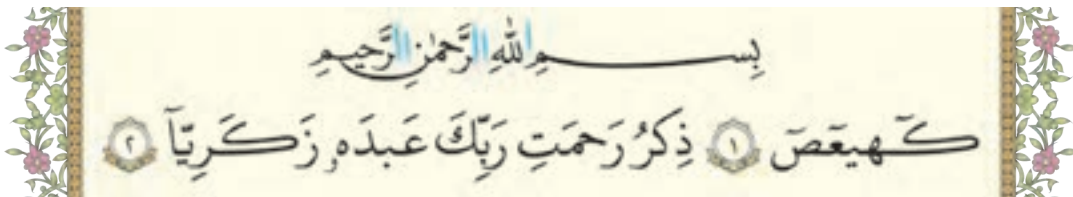 بِسمِ اللهِ الرَّحمٰنِ الرَّحيمِ
كٓهيعٓصٓ ۝١ ذِكرُ رَحمَتِ رَبِّكَ عَبدَهُۥ زَكَرِيّآ ۝٢